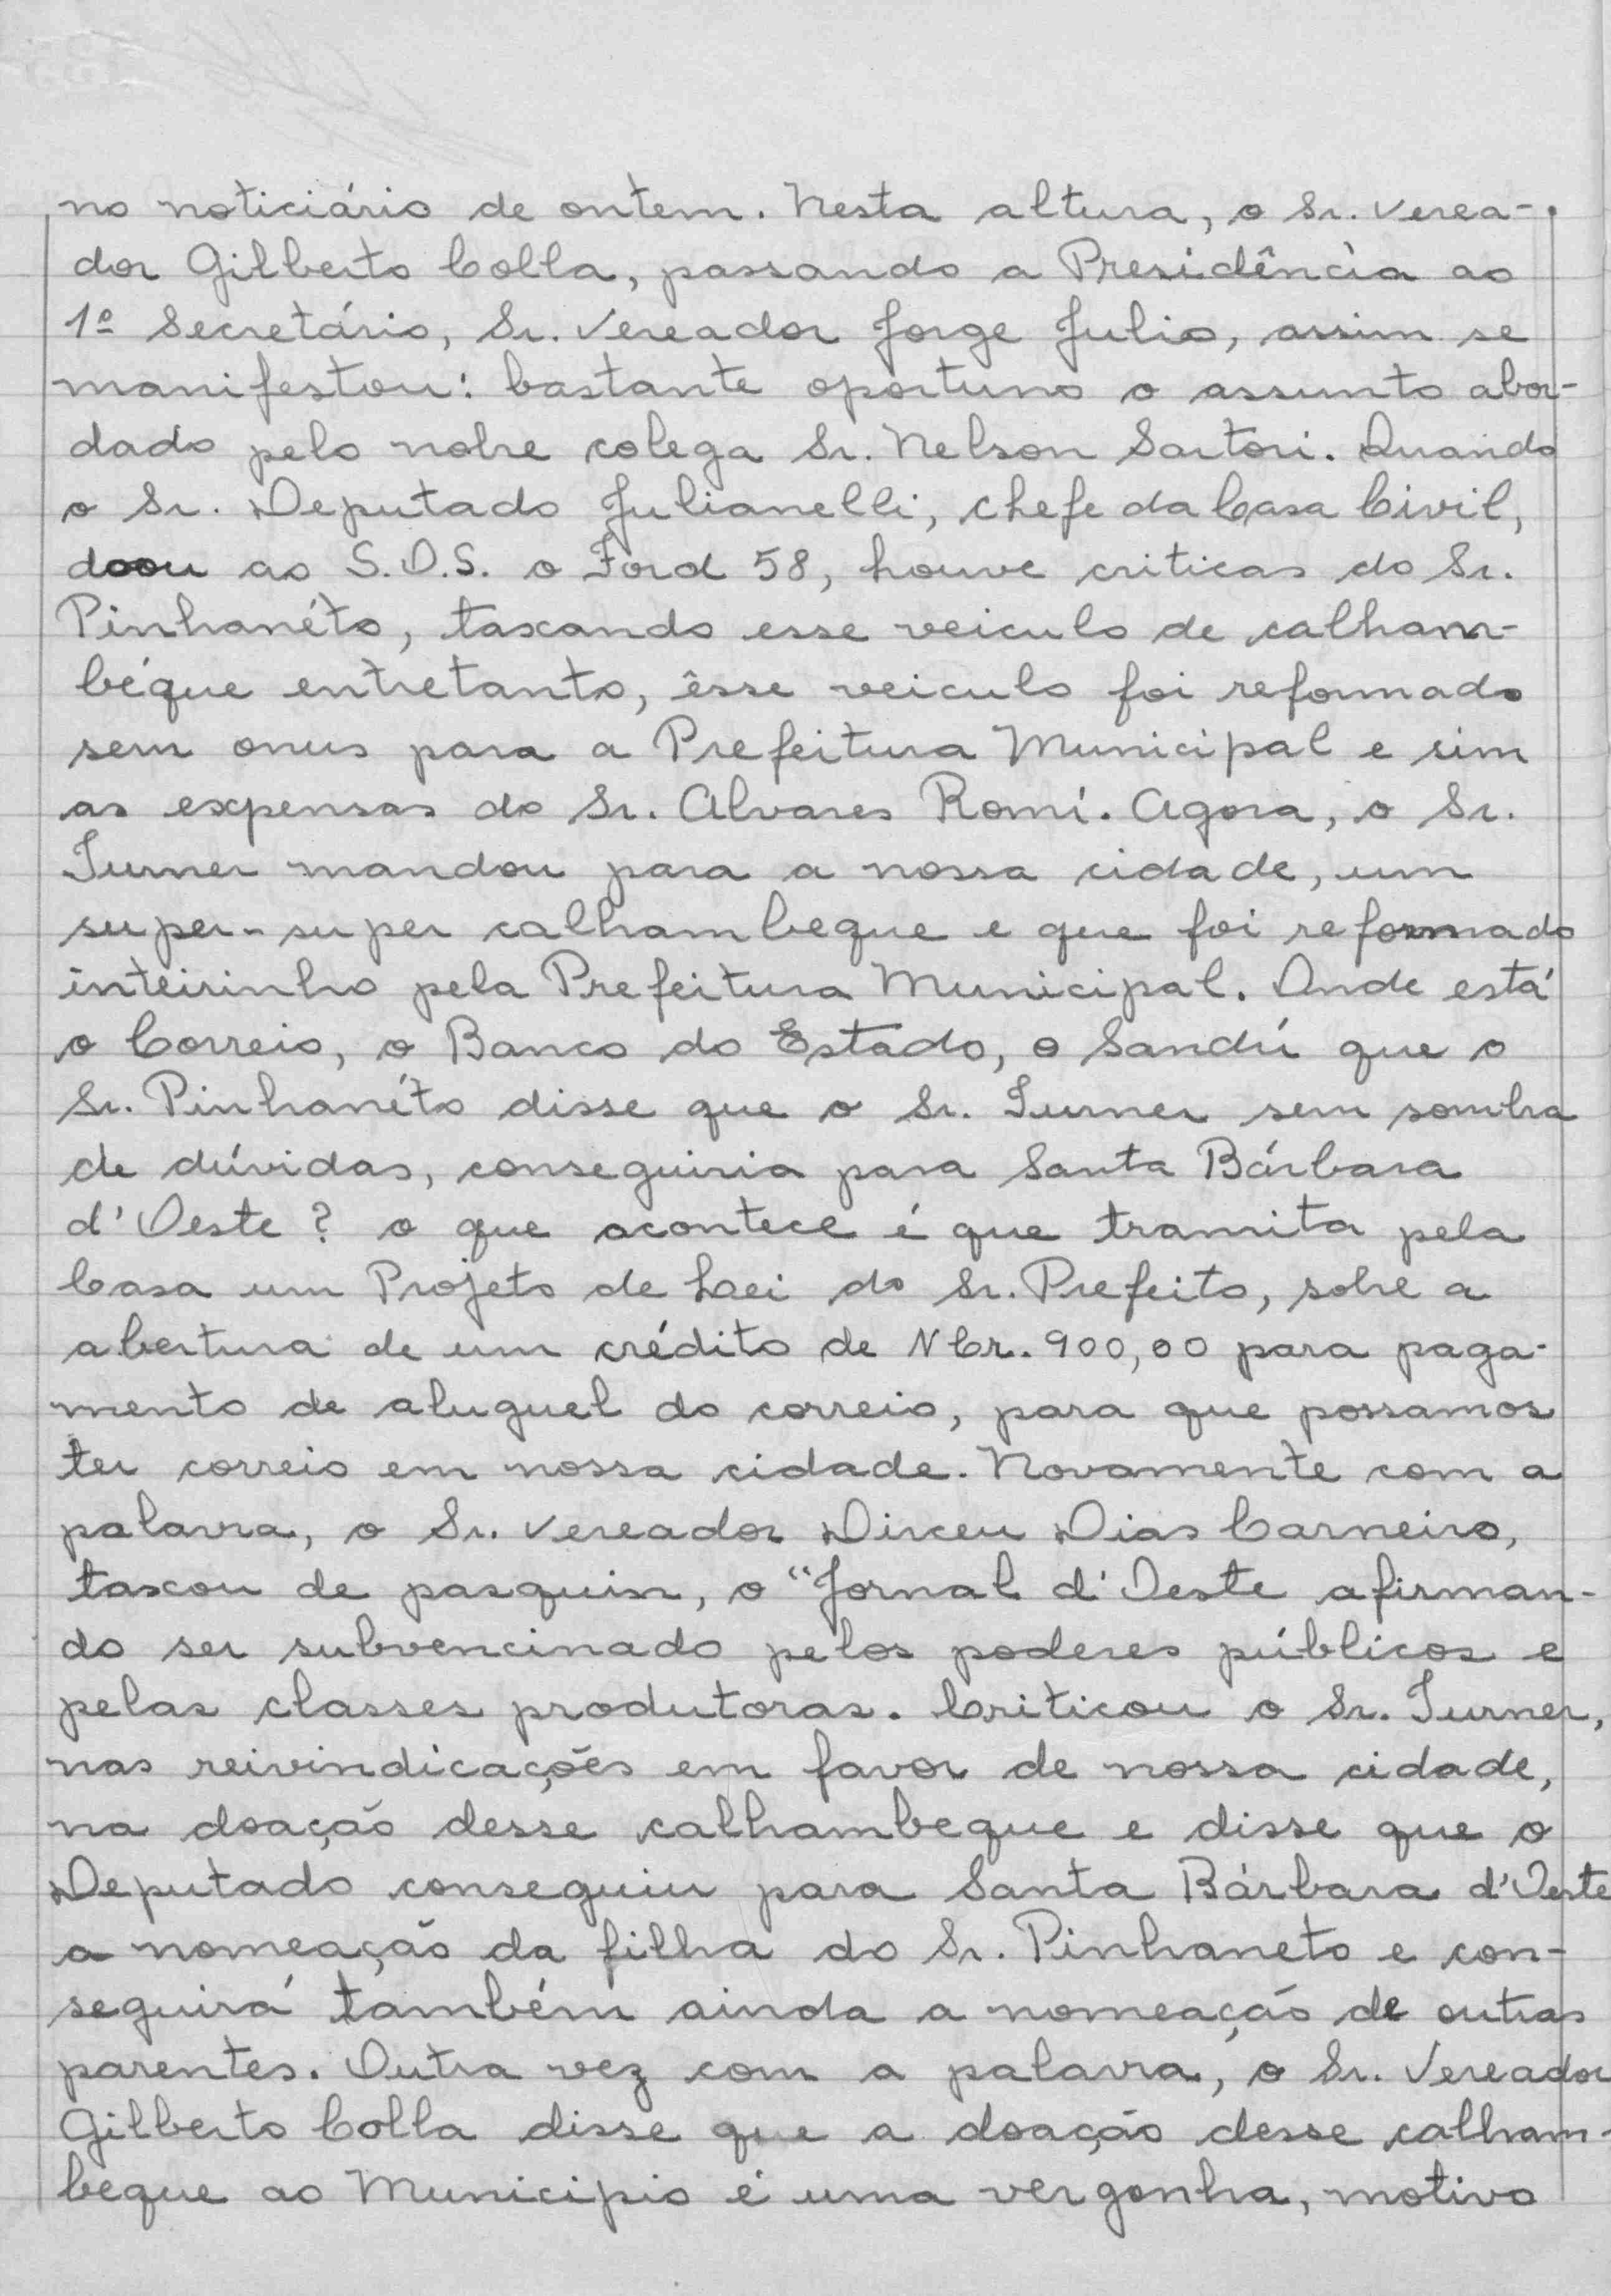 no noticiário de ontem. Nesta altura, o Sr. Verea-
dor Gilberto Colla, passando a Presidência ao
1º Secretário, Sr. Vereador Jorge Julio, assim se
manifestou: bastante oportuno o assunto abor-
dado pelo nobre colega Sr. Nelson Sartori. Quando
o Sr. Deputado Julianelli, chefe da Casa Civil,
doou ao S.O.S. o Ford 58, houve criticas do Sr.
Pinhanéto, taxando esse veiculo de calham-
béque entretanto, êsse veiculo foi reformado
sem onus para a Prefeitura Municipal e sim
as expensas do Sr. Alvares Romí. Agora, o Sr.
Turner mandou para a nossa cidade, um
super-super calhambeque e que foi reformado
inteirinho pela Prefeitura Municipal. Onde está
o Correio, o Banco do Estado, o Sandú que o
Sr. Pinhanéto disse que o Sr. Turner sem sombra
de dúvidas, conseguiria para Santa Bárbara
d'Oeste? o que acontece é que tramita pela
Casa um Projeto de Lei do Sr. Prefeito, sobre a
abertura de um crédito de NCr. 900,00 para paga-
mento de aluguel do correio, para que possamos
ter correio em nossa cidade. Novamente com a
palavra, o Sr. Vereador Dirceu Dias Carneiro,
taxou de pasquim, o "Jornal d'Oeste afirman-
do ser subvencinado pelos poderes públicos e
pelas classes produtoras. Criticou o Sr. Turner,
nas reivindicações em favor de nossa cidade,
na doação desse calhambeque e disse que o
Deputado conseguiu para Santa Bárbara d'Oeste
a nomeação da filha do Sr. Pinhaneto e con-
seguirá também ainda a nomeação de outras
parentes. Outra vez com a palavra, o Sr. Vereador
Gilberto Colla disse que a doação desse calham-
beque ao Municipio é uma vergonha, motivo